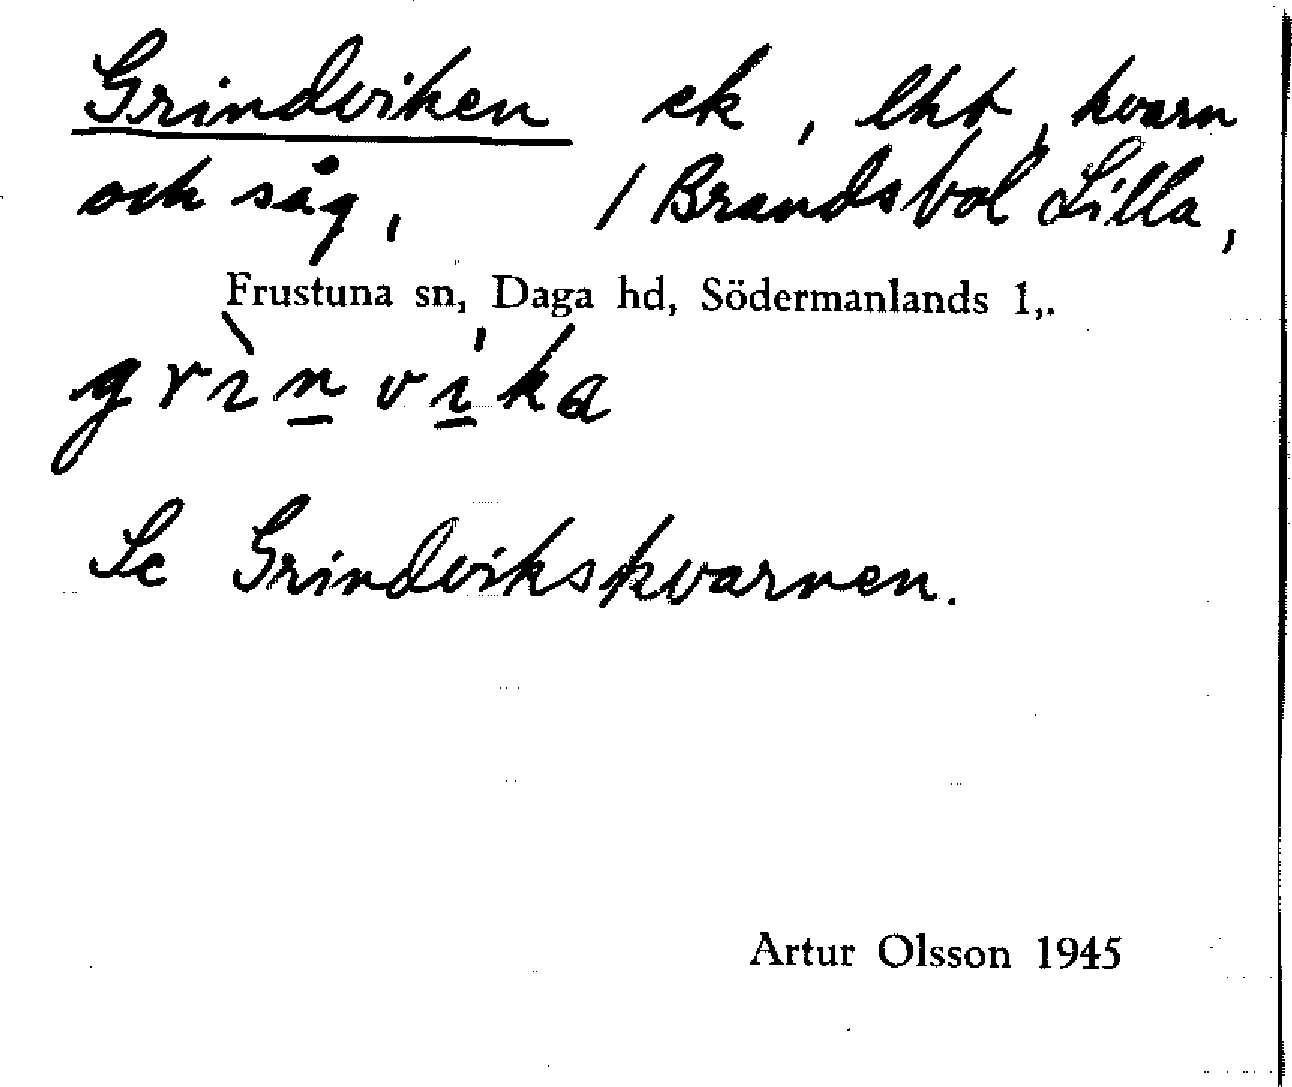 Grindviken ek, lht, kvarn
och såg, / Brandsbol Lilla,
Frustuna sn, Daga hd, Södermanlands l,.
grìnvíka
Se Grindvikskvarnen.
Artur Olsson 1945